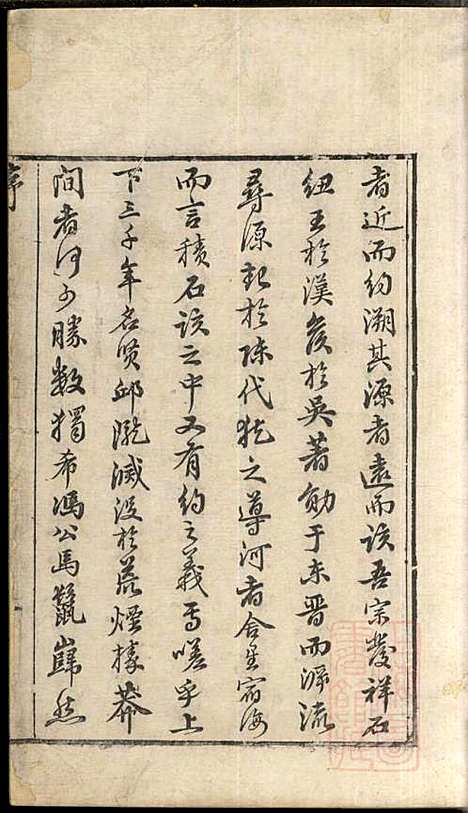 者近而約溯其源者遠而該吾宗發祥石
紐王於漢侯於吳著勛于東晉而源流
尋源起於陳代犹之導河者舍星宿海
而言積石該之中又有約之義焉嗟乎上
下三千年名賢邱隴滅没於荒煙榛莽
間者何可勝數獨希馮公馬鬣巋然
序